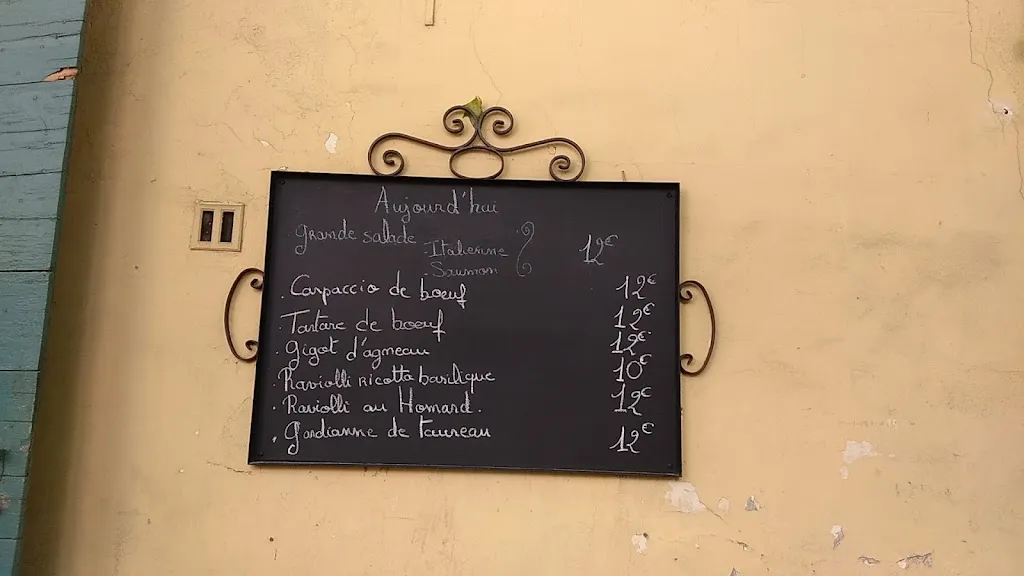 Aujourd'hui
Grande salade - Italienne 12€
- Saumon
. Carpaccio de boeuf 12€
. Tartare de boeuf 12€
. Gigot d'agneau 12€
. Raviolli ricotta basilique 10€
. Raviolli au Homard. 12€
. Gardianne de taureau 12€